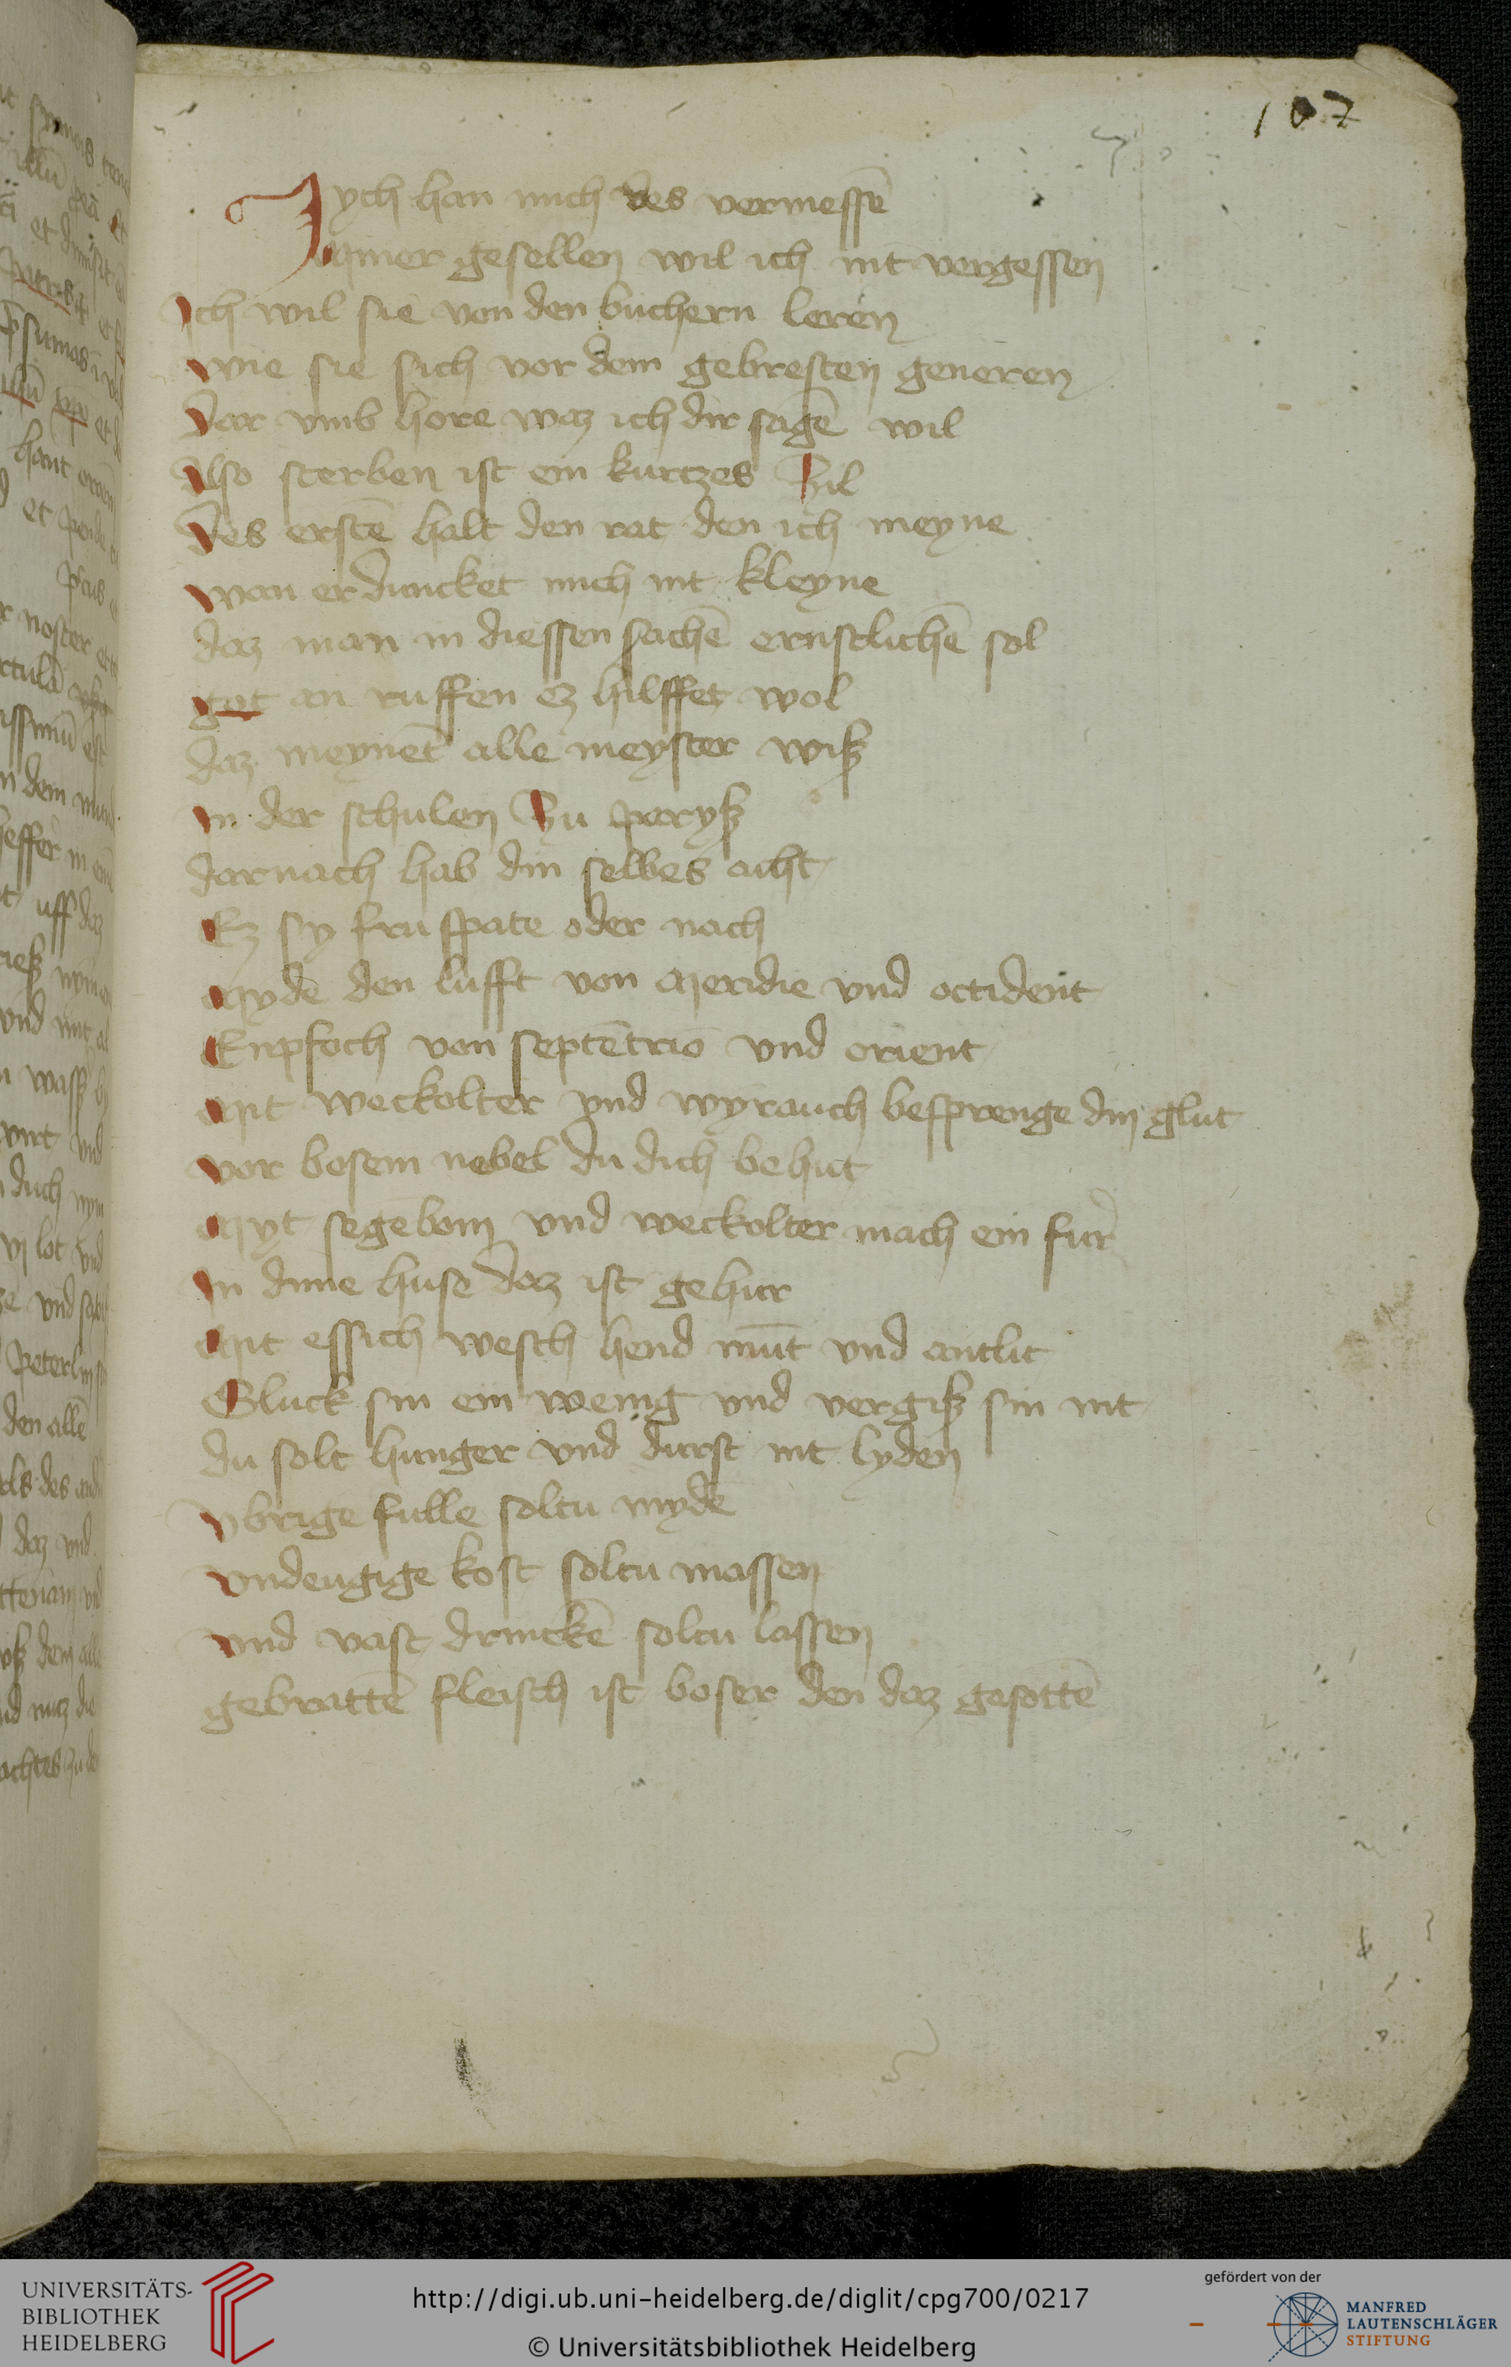 107
Iych han mich des vermessē
Myner gesellen wil ich nit vergessen
Ich wil sie von den buchern leren
wie sie sich vor dem gebresten generen
Dar vmb hore waz ich dir sagē wil
Also sterben ist ein kurtzes Zil
Des erstē halt den rat den ich meyne
wan er duncket mich nit kleyne
daz man in diessen sachē ernstlichē sol
got an ruffen ez hilffet wol
daz meynēt alle meyster wiß
in der schulen Zu paryß
darnach hab din selbes acht
Ez sy fru spate oder nach
Mydē den lufft von Meridie vnd occident
Enpfoch von septētrio vnd orient
Mit weckolter vnd wyrauch besprenge din glut
vor bosem nebel du dich behut
Myt segēbom vnd weckolter mach ein fur
In dime huse daz ist gehur
Mit essich wesch hend mūt vnd antlit
Sluck sin ein wenig vnd vergiß sin nit
du solt hunger vnd durst nit lyden
Vbrige fulle soltu mydē
vndeugige kost soltu massen
vnd vast drinckē soltu lassen
gebrattē fleisch ist boser den daz gesottē
UNIVERSITÄTS-
BIBLIOTHEK
HEIDELBERG
http://digi.ub.uni-heidelberg.de/diglit/cpg700/0217
© Universitätsbibliothek Heidelberg
gefördert von der
MANFRED
LAUTENSCHLÄGER
STIFTUNG